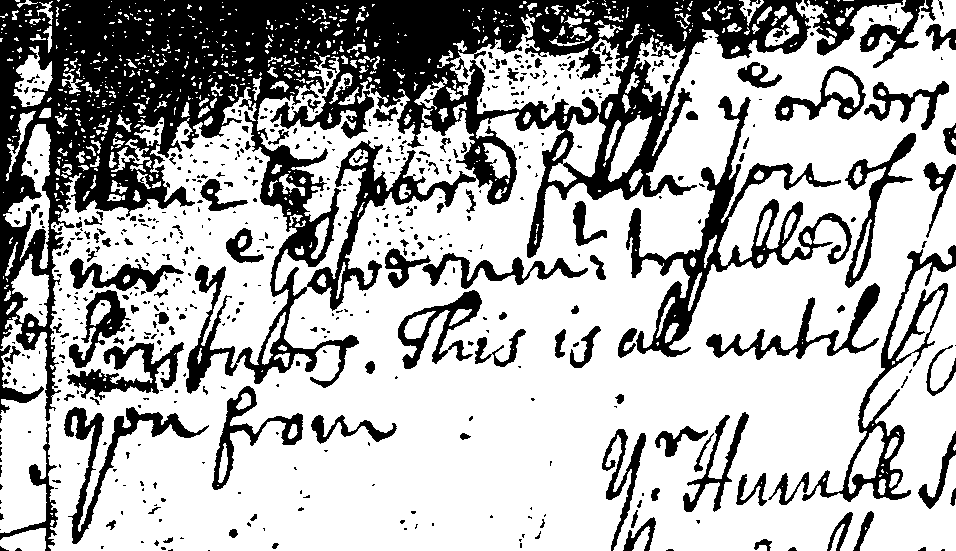 yᵉ old Fox
his Cubs got away. yᵉ orders
none be spar'd from you of yᵉ
nor yᵉ Governmᵗ troubled
Prisoners. This is all until
you from
Yʳ Humble